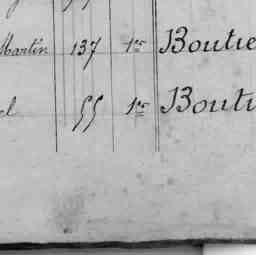 Martin 137 1er Boutie
55 1er Bouti